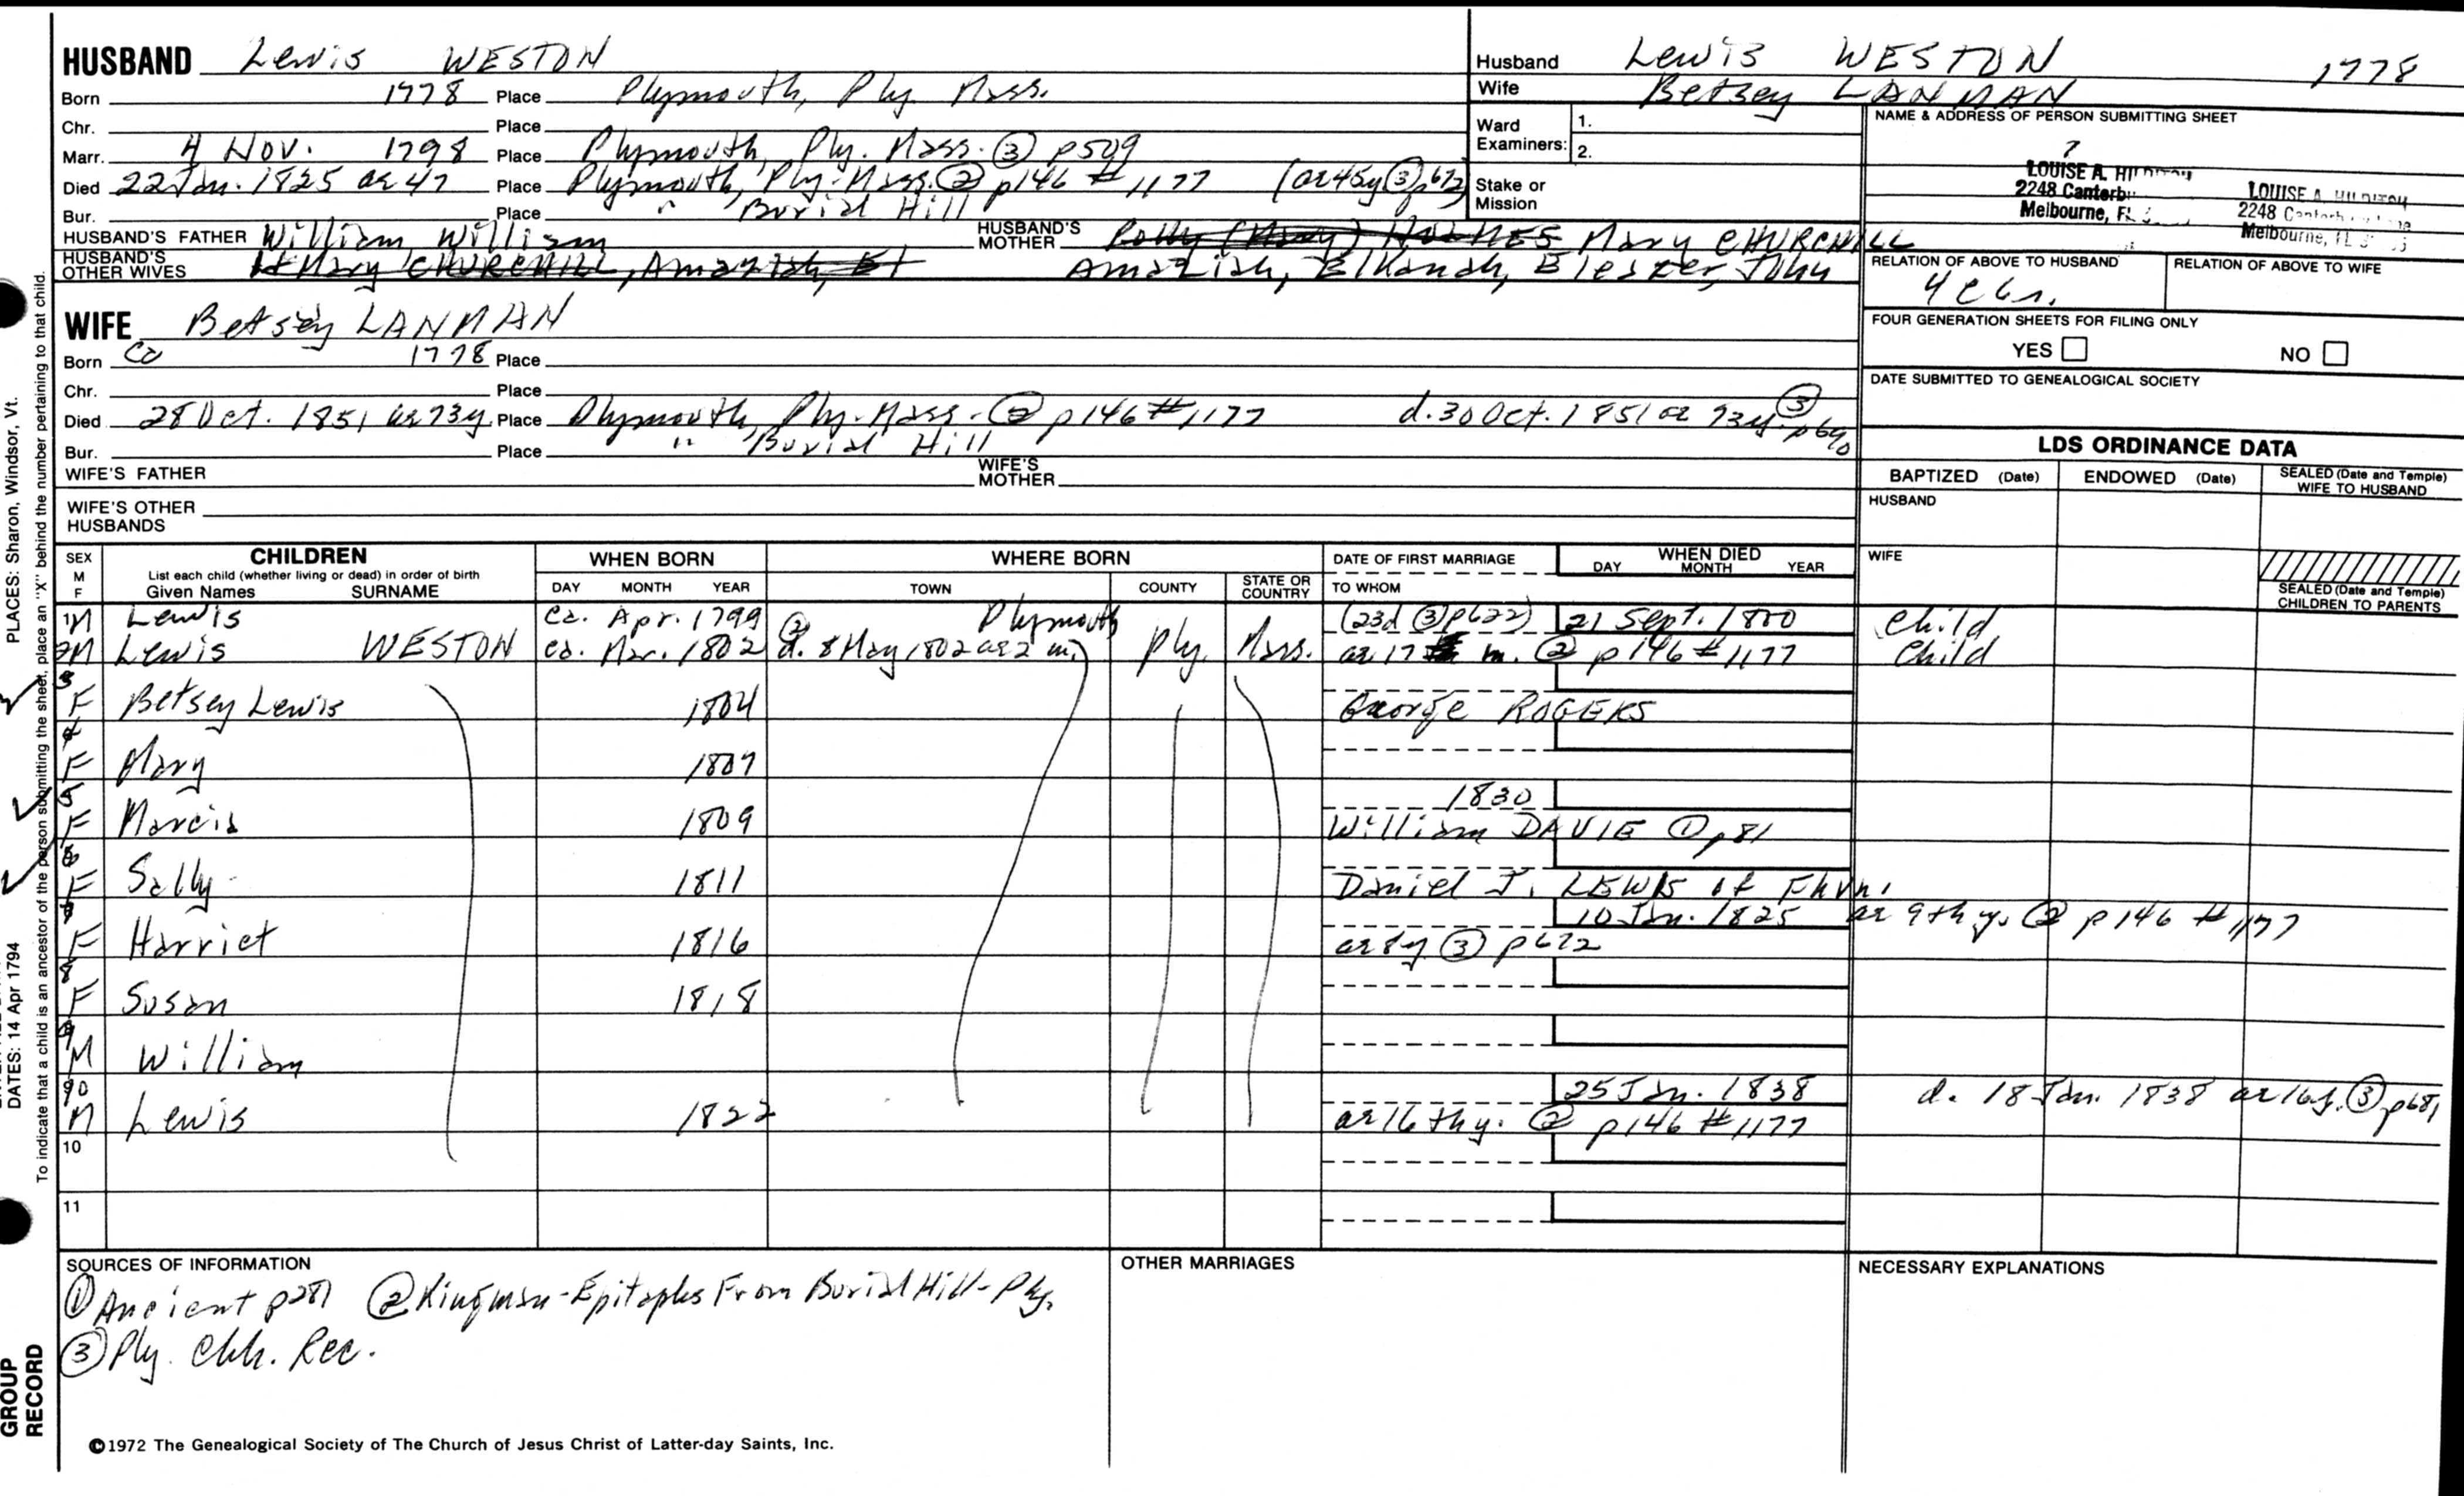 HUSBAND Lewis WESTON
Born 1778 Place Plymouth, Ply. Mass.
Chr. Place
Marr. 4 Nov. 1798 Place Plymouth, Ply. Mass. ③ p509
Died 22 Jan. 1825 ae 47 Place Plymouth, Ply. Mass. ② p146 #1177 (ae 45y ③ p672)
Bur. Place " Burial Hill
HUSBAND'S FATHER William, William HUSBAND'S MOTHER Polly (Mary) HOLMES Mary CHURCHILL
HUSBAND'S OTHER WIVES Mary CHURCHILL, Amaziah, El Amaziah, Elkanah, Eleazer, John
Husband Lewis WESTON 1778
Wife Betsey LANMAN
Ward Examiners: 1.
2.
Stake or Mission
NAME & ADDRESS OF PERSON SUBMITTING SHEET
LOUISE A.
2248
Melbourne, FL
LOUISE A.
2248
Melbourne, FL
RELATION OF ABOVE TO HUSBAND RELATION OF ABOVE TO WIFE
FOUR GENERATION SHEETS FOR FILING ONLY
YES NO
DATE SUBMITTED TO GENEALOGICAL SOCIETY
WIFE Betsey LANMAN
Born Ca 1778 Place
Chr. Place
Died 28 Oct. 1851 ae 73y. Place Plymouth, Ply. Mass. ② p146 #1177 d. 30 Oct. 1851 ae 73y. ③ p690
Bur. Place " Burial Hill
WIFE'S FATHER WIFE'S MOTHER
WIFE'S OTHER HUSBANDS
LDS ORDINANCE DATA
BAPTIZED (Date) ENDOWED (Date) SEALED (Date and Temple) WIFE TO HUSBAND
HUSBAND
WIFE
SEALED (Date and Temple) CHILDREN TO PARENTS
SEX M F CHILDREN List each child (whether living or dead) in order of birth Given Names SURNAME
WHEN BORN DAY MONTH YEAR
WHERE BORN TOWN COUNTY STATE OR COUNTRY
DATE OF FIRST MARRIAGE TO WHOM
WHEN DIED DAY MONTH YEAR
1 M Lewis ca. Apr. 1799 Plymouth (23d ③ p622) 21 Sept. 1800 Child
2 M Lewis WESTON ca. Mar. 1802 ② d. 8 May 1802 ae 2 m. Ply. Mass. ae 17 m. ② p146 #1177 Child
3 F Betsey Lewis 1804 George ROGERS
4 F Mary 1807
5 F Marcia 1809 1830 William DAVIE ① p81
6 F Sally 1811 Daniel J. LEWIS of Fhvn.
7 F Harriet 1816 10 Jan. 1825 ae 9th y. ② p146 #1177
ae 8y ③ p672
8 F Susan 1818
9 M William
90 M Lewis 1822 25 Jan. 1838 d. 18 Jan. 1838 ae 16y. ③ p681
ae 16thy. ② p146 #1177
10
11
SOURCES OF INFORMATION
① Ancient p281 ② Kingman-Epitaphs From Burial Hill-Ply.
③ Ply. Chh. Rec.
OTHER MARRIAGES
NECESSARY EXPLANATIONS
©1972 The Genealogical Society of The Church of Jesus Christ of Latter-day Saints, Inc.
PLACES: Sharon, Windsor, Vt.
DATES: 14 Apr 1794
To indicate that a child is an ancestor of the person submitting the sheet, place an "X" behind the number pertaining to that child.
GROUP RECORD